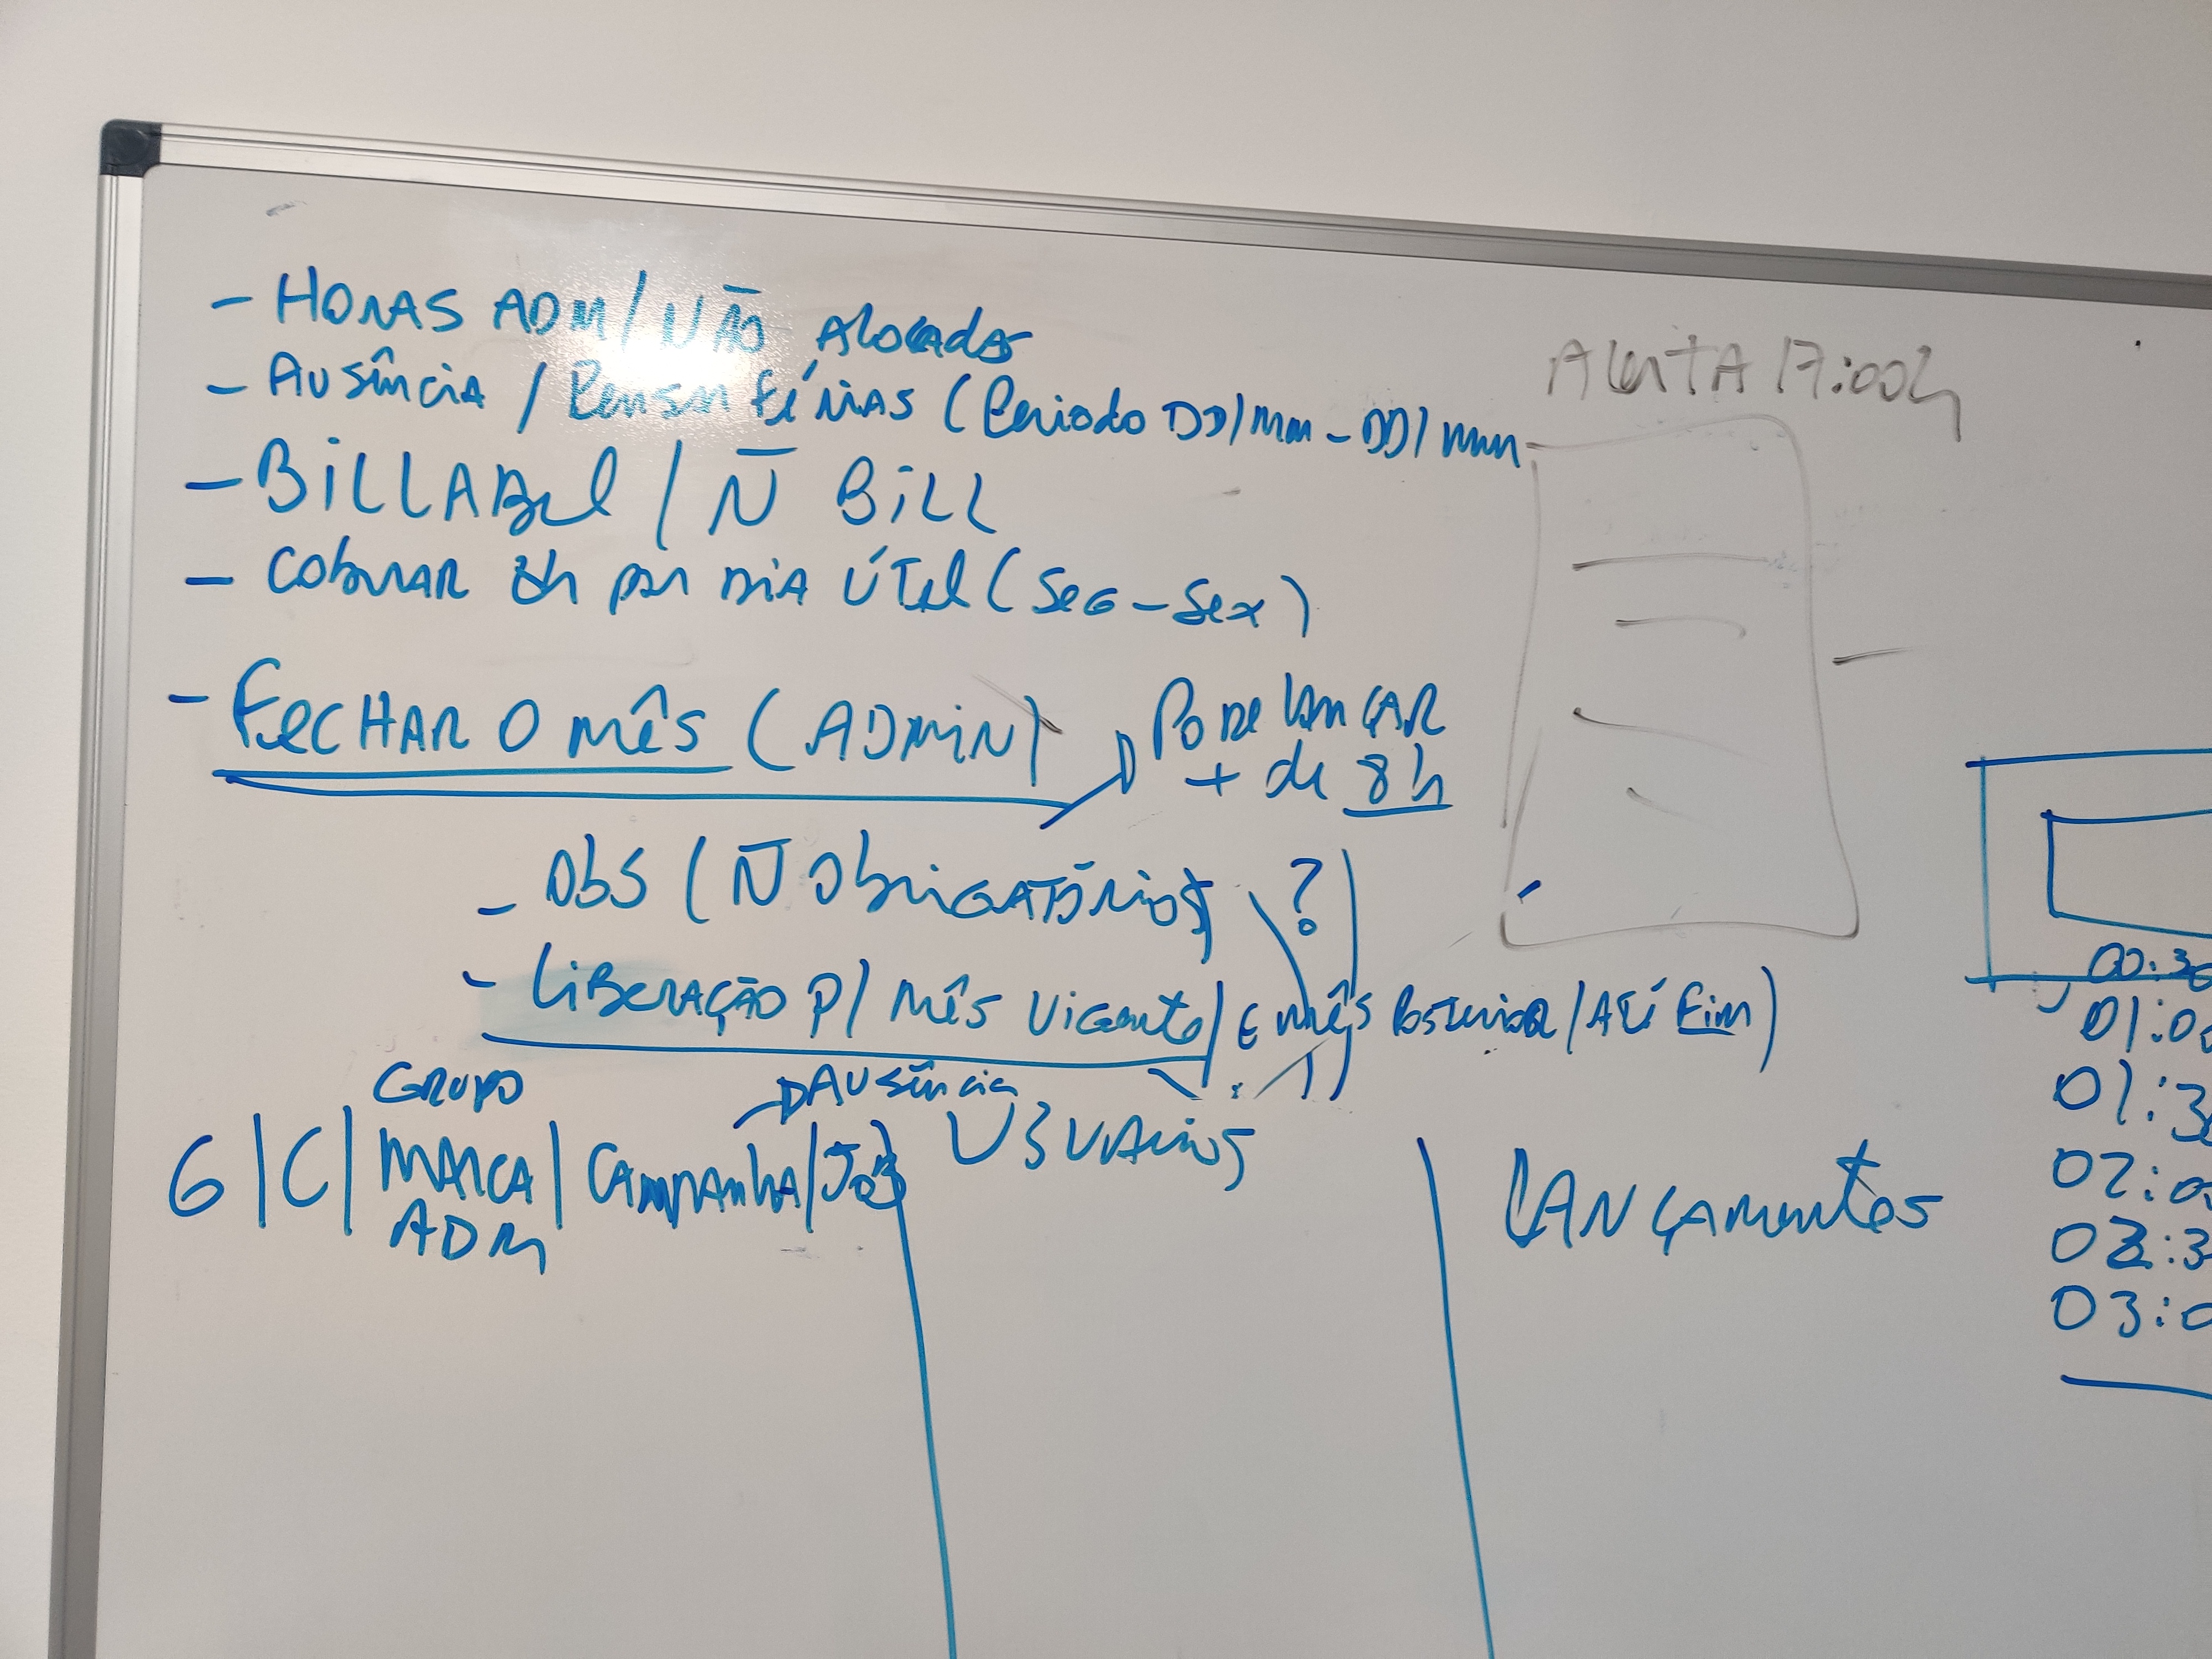 - HORAS ADM / NÃO ALOCADAS
- AUSÊNCIA / Pensar FÉRIAS (Período DD/mm - DD/mm
- BILLABEL / Ñ BILL
- COBRAR 8h por DIA ÚTEL (SEG - SEX)
- FECHAR O MÊS (ADMIN)
PODE LANÇAR
+ de 8h
- OBS (Ñ OBRIGATÓRIO) ?
- LIBERAÇÃO P/ MÊS VIGENTE / E MÊS POSTERIOR / ATÉ FIM)
GRUPO
AUSÊNCIA
G | C | MARCA | CAMPANHA / JOB
ADM
USUÁRIOS
LANÇAMENTOS
ALERTA 17:00h
00:30
01:0
01:3
02:0
02:3
03:0